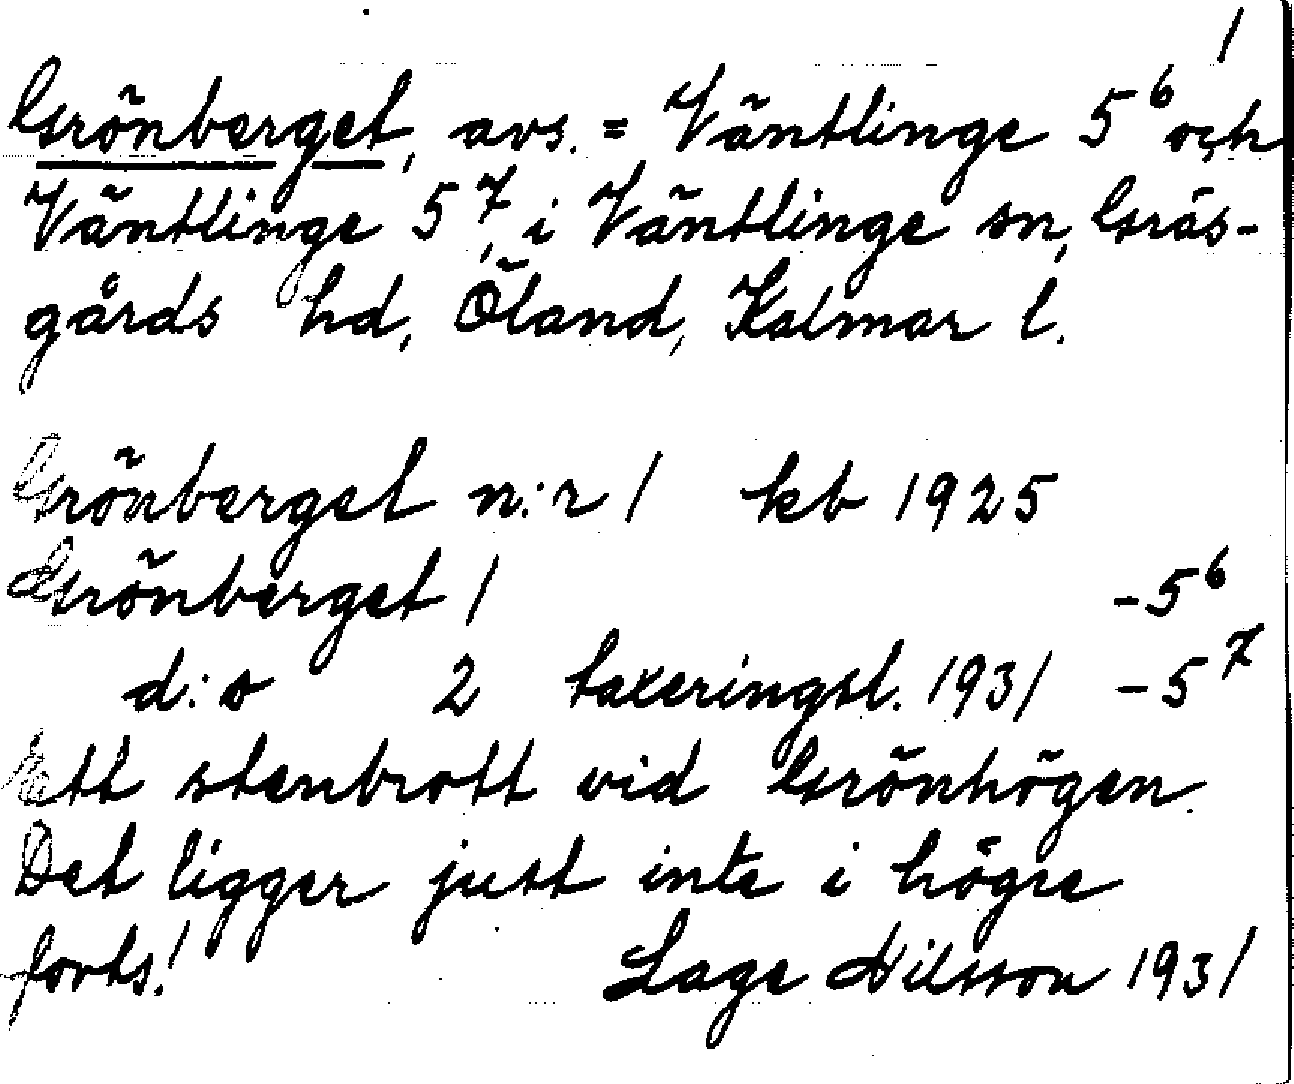 1
Grönberget, avs. = Ventlinge 5⁶ och
Ventlinge 5⁷, i Ventlinge sn, Gräs-
gårds hd, Öland, Kalmar l.
Grönberget n:r 1 kb 1925
Grönberget 1 -5⁶
d:o 2 taxeringsl. 1931 -5⁷
Ett stenbrott vid Grönhögen.
Det ligger just inte i högre
forts! Lage Nilsson 1931